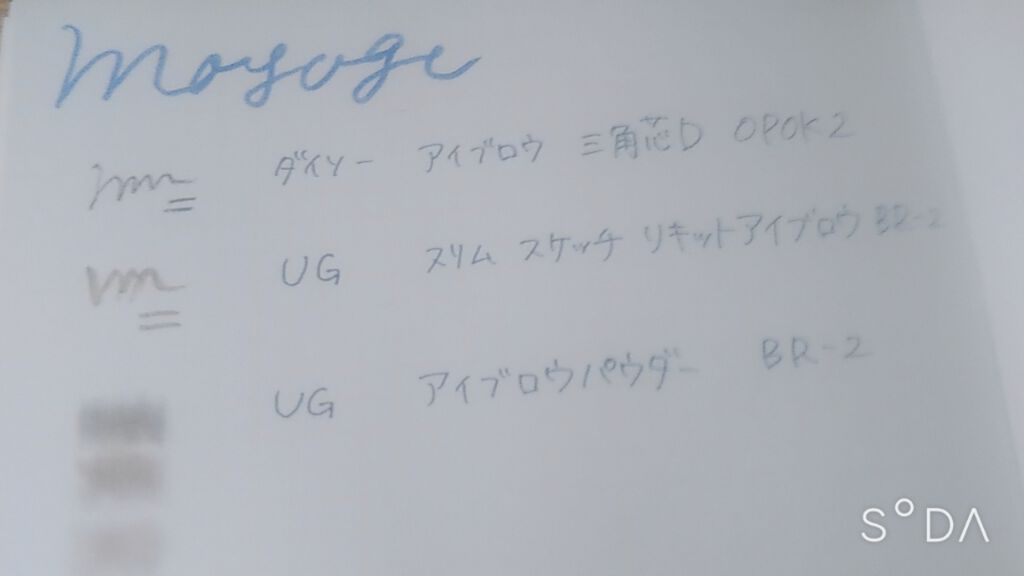 mayuge
ダイソー アイブロウ 三角芯D OPOK2
UG スリム スケッチ リキットアイブロウ BR-2
UG アイブロウパウダー BR-2
SODA